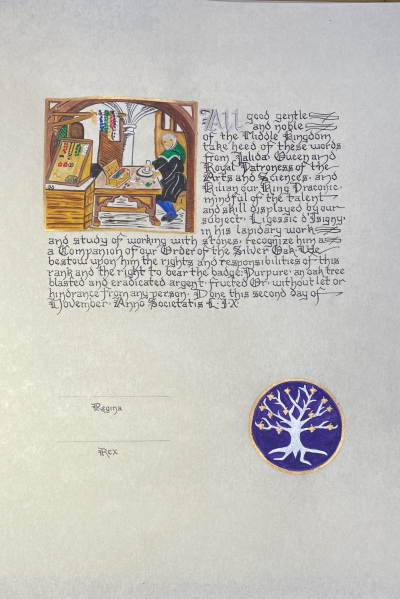 All good gentle
and noble
of the Middle Kingdom
take heed of these words
from Jalida Queen and
Royal Patroness of the
Arts and Sciences, and
Kilian our King Draconic
mindful of the talent
and skill displayed by our
subject, Ligessic d'Isigny
in his lapidary work
and study of working with stones, recognize him as
a Companion of our Order of the Silver Oak. We
bestow upon him the rights and responsibilities of this
rank and the right to bear the badge: Purpure, an oak tree
blasted and eradicated argent, fructed Or, without let or
hindrance from any person. Done this second day of
November, Anno Societatis L.I.X
Regina
Rex